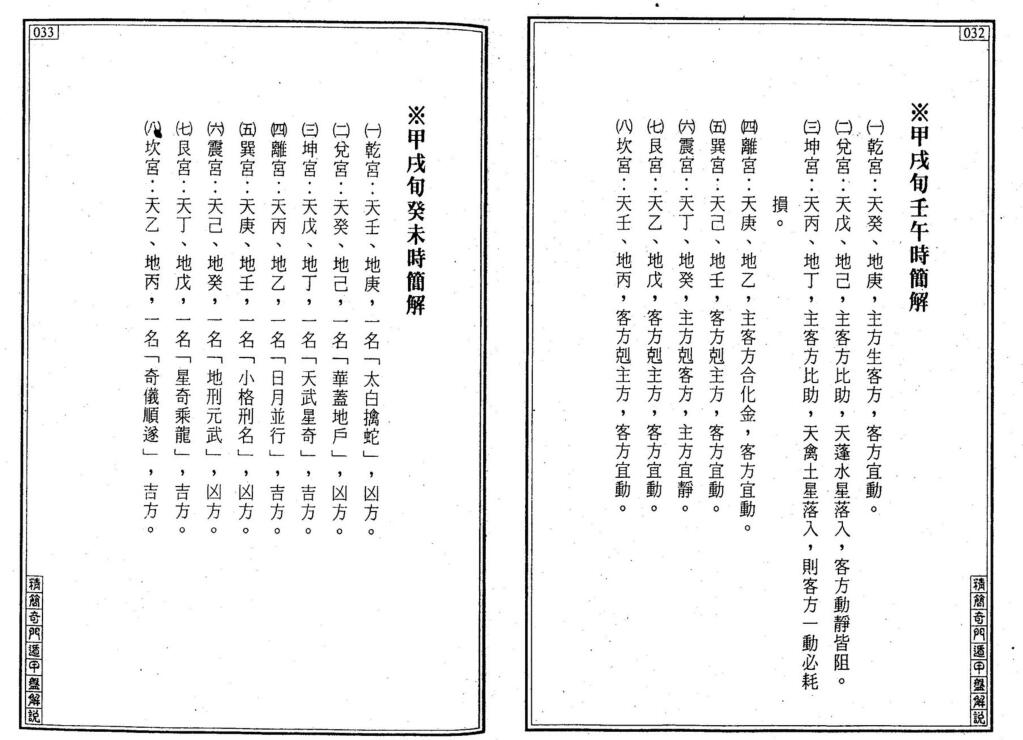 032
※甲戌旬壬午時簡解
㈠乾宮：天癸、地庚，主方生客方，客方宜動。
㈡兌宮：天戊、地己，主客方比助，天蓬水星落入，客方動靜皆阻。
㈢坤宮：天丙、地丁，主客方比助，天禽土星落入，則客方一動必耗
損。
㈣離宮：天庚、地乙，主客方合化金，客方宜動。
㈤巽宮：天己、地壬，客方剋主方，客方宜動。
㈥震宮：天丁、地癸，主方剋客方，主方宜靜。
㈦艮宮：天乙、地戊，客方剋主方，客方宜動。
㈧坎宮：天壬、地丙，客方剋主方，客方宜動。
精簡奇門遁甲盤解説
033
※甲戌旬癸未時簡解
㈠乾宮：天壬、地庚，一名「太白擒蛇」，凶方。
㈡兌宮：天癸、地己，一名「華蓋地戶」，凶方。
㈢坤宮：天戊、地丁，一名「天武星奇」，吉方。
㈣離宮：天丙、地乙，一名「日月並行」，吉方。
㈤巽宮：天庚、地壬，一名「小格刑名」，凶方。
㈥震宮：天己、地癸，一名「地刑元武」，凶方。
㈦艮宮：天丁、地戊，一名「星奇乘龍」，吉方。
㈧坎宮：天乙、地丙，一名「奇儀順遂」，吉方。
精簡奇門遁甲盤解説